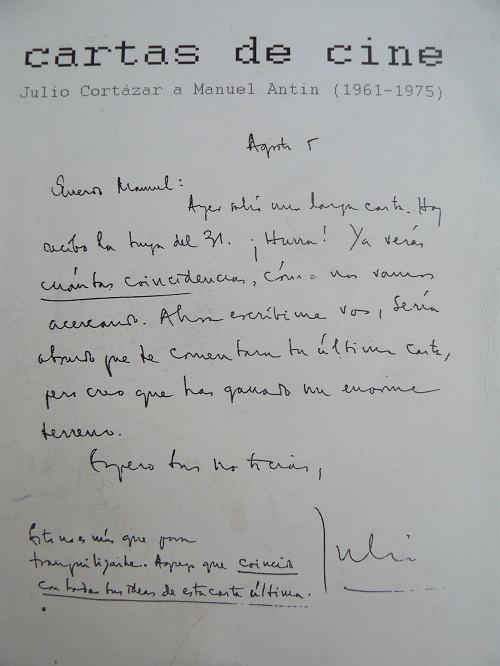 cartas de cine
Julio Cortázar a Manuel Antin (1961-1975)
Agosto 5
Querido Manuel:
Ayer salió una larga carta. Hoy
recibo la tuya del 31. ¡Hurra! Ya verás
cuántas coincidencias, cómo nos vamos
acercando. Ahora escribime vos, sería
absurdo que te comentara tu última carta,
pero creo que has ganado un enorme
terreno.
Espero tus noticias,
Julio
Esto no es más que para
tranquilizarte. Agrego que coincido
con todas tus ideas de esta carta última.